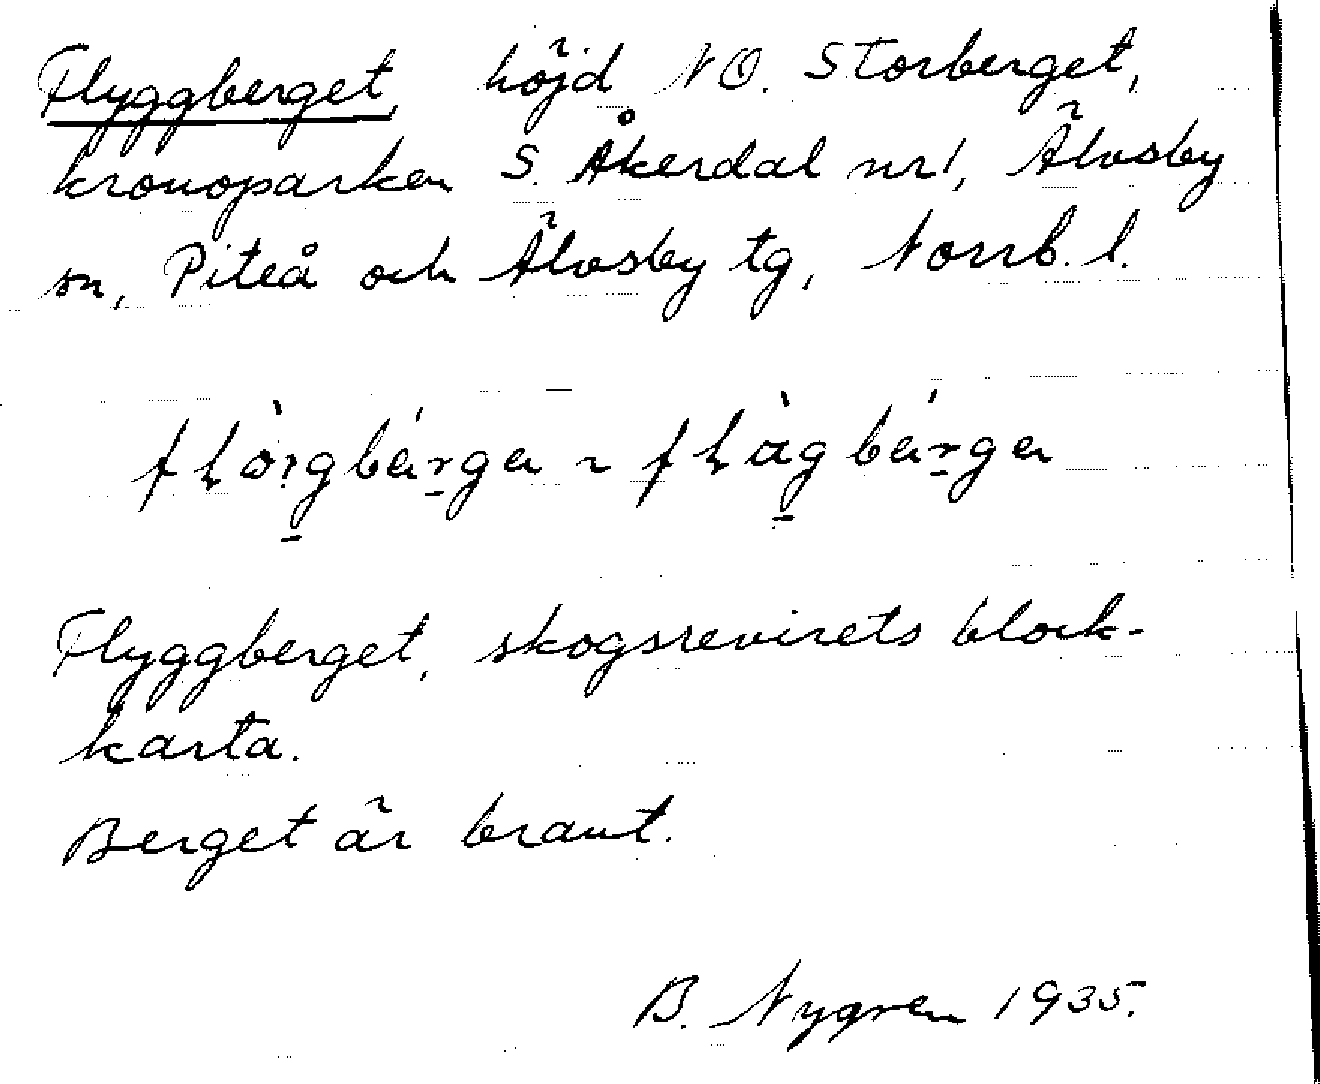 Flyggberget, höjd NO. Storberget,
kronoparken S. Åkerdal nr 1, Älvsby
sn, Piteå och Älvsby tg, Norrb. l.
Flyggberget, skogsrevirets block-
karta.
Berget är brant.
B. Nygren 1935.